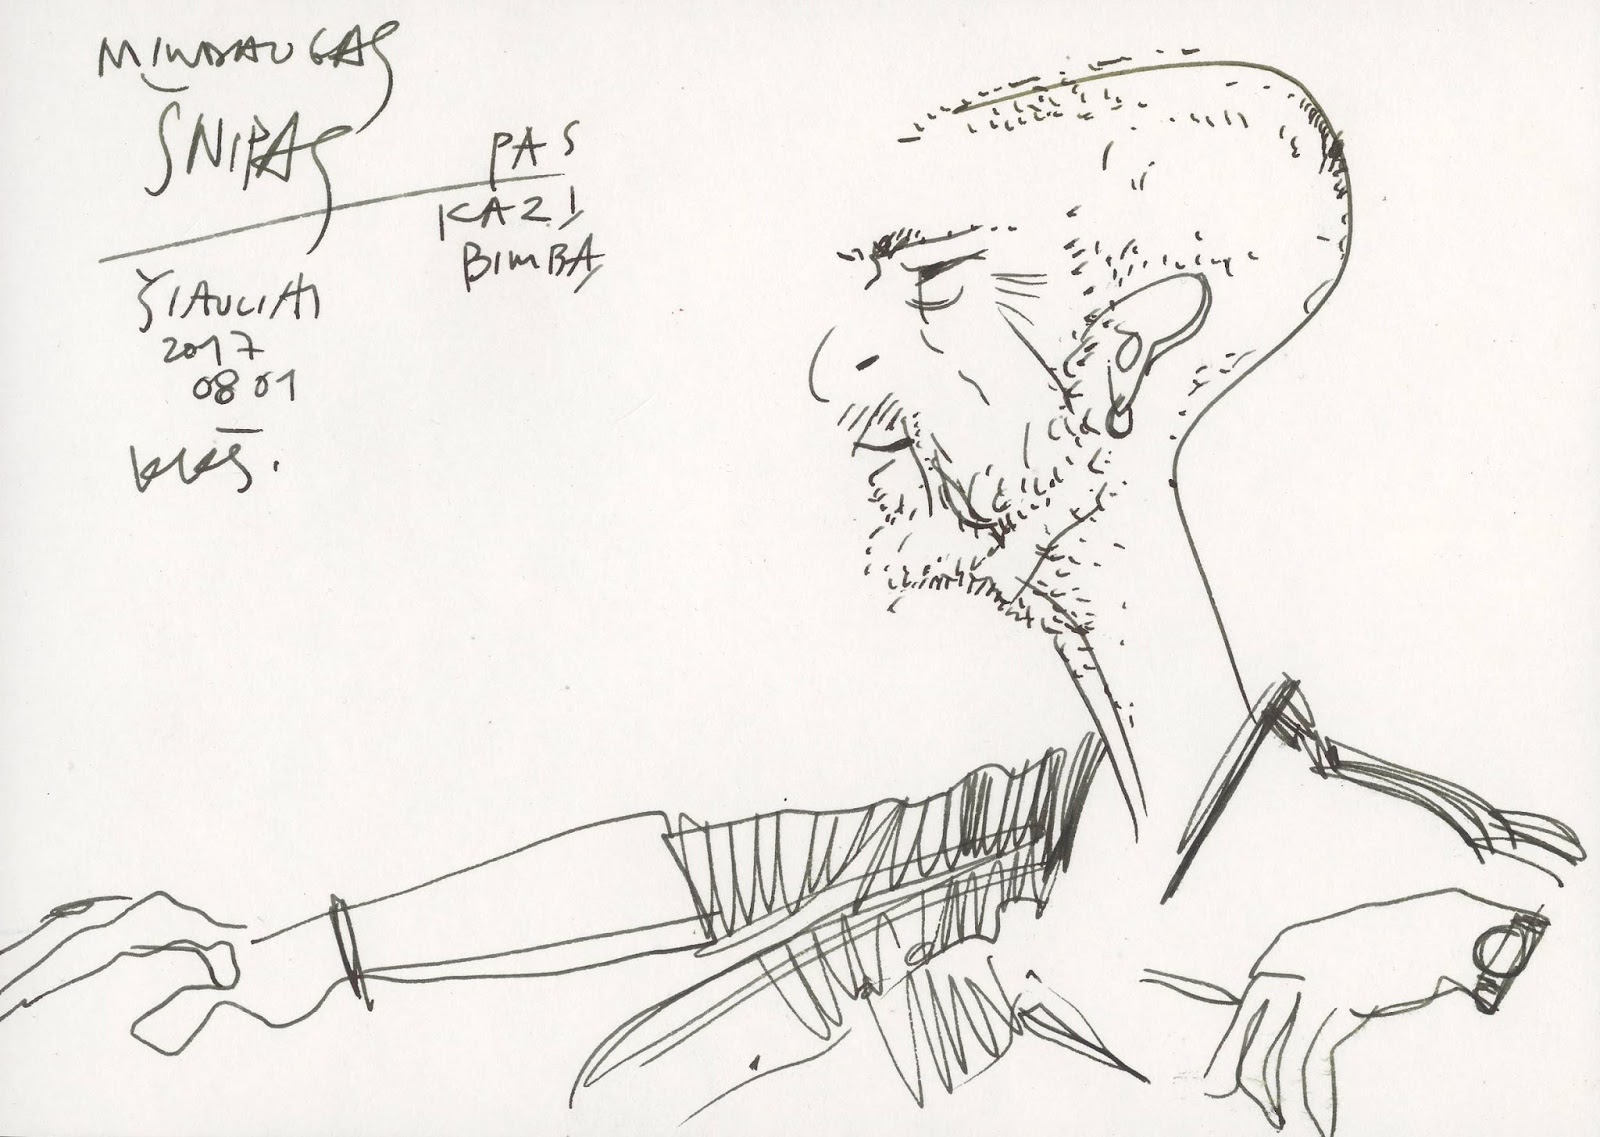 MINDAUGAS
ŠNIPAS
PAS
KAZĮ
BIMBĄ
ŠIAULIAI
2017
08 01